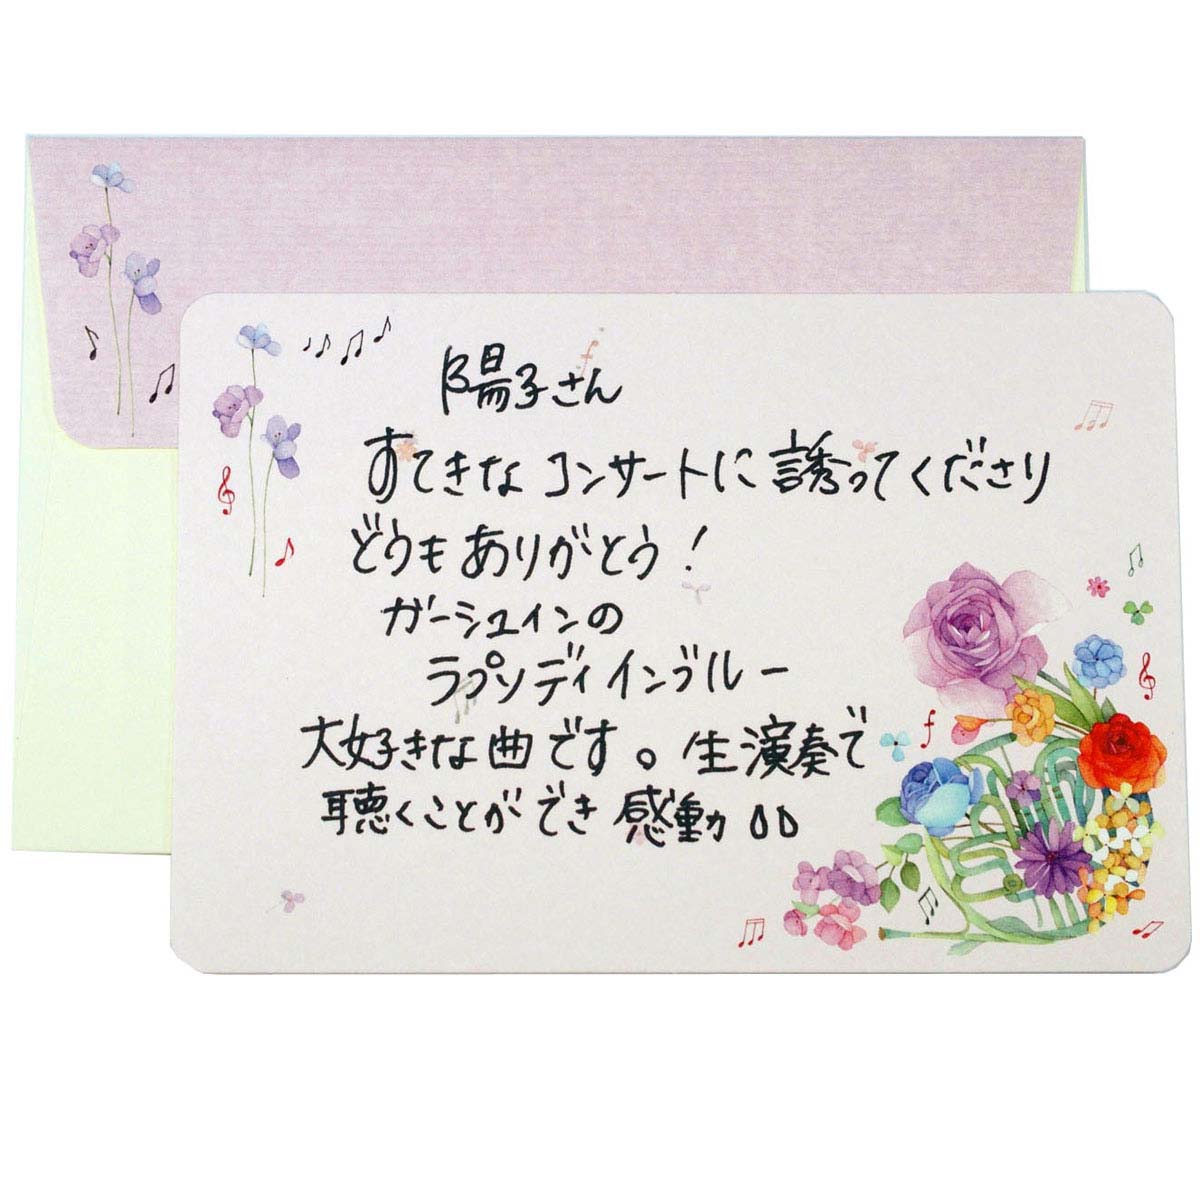 陽子さん
すてきなコンサートに誘ってくださり
どうもありがとう!
ガーシュインの
ラプソディインブルー
大好きな曲です。生演奏で
聴くことができ感動